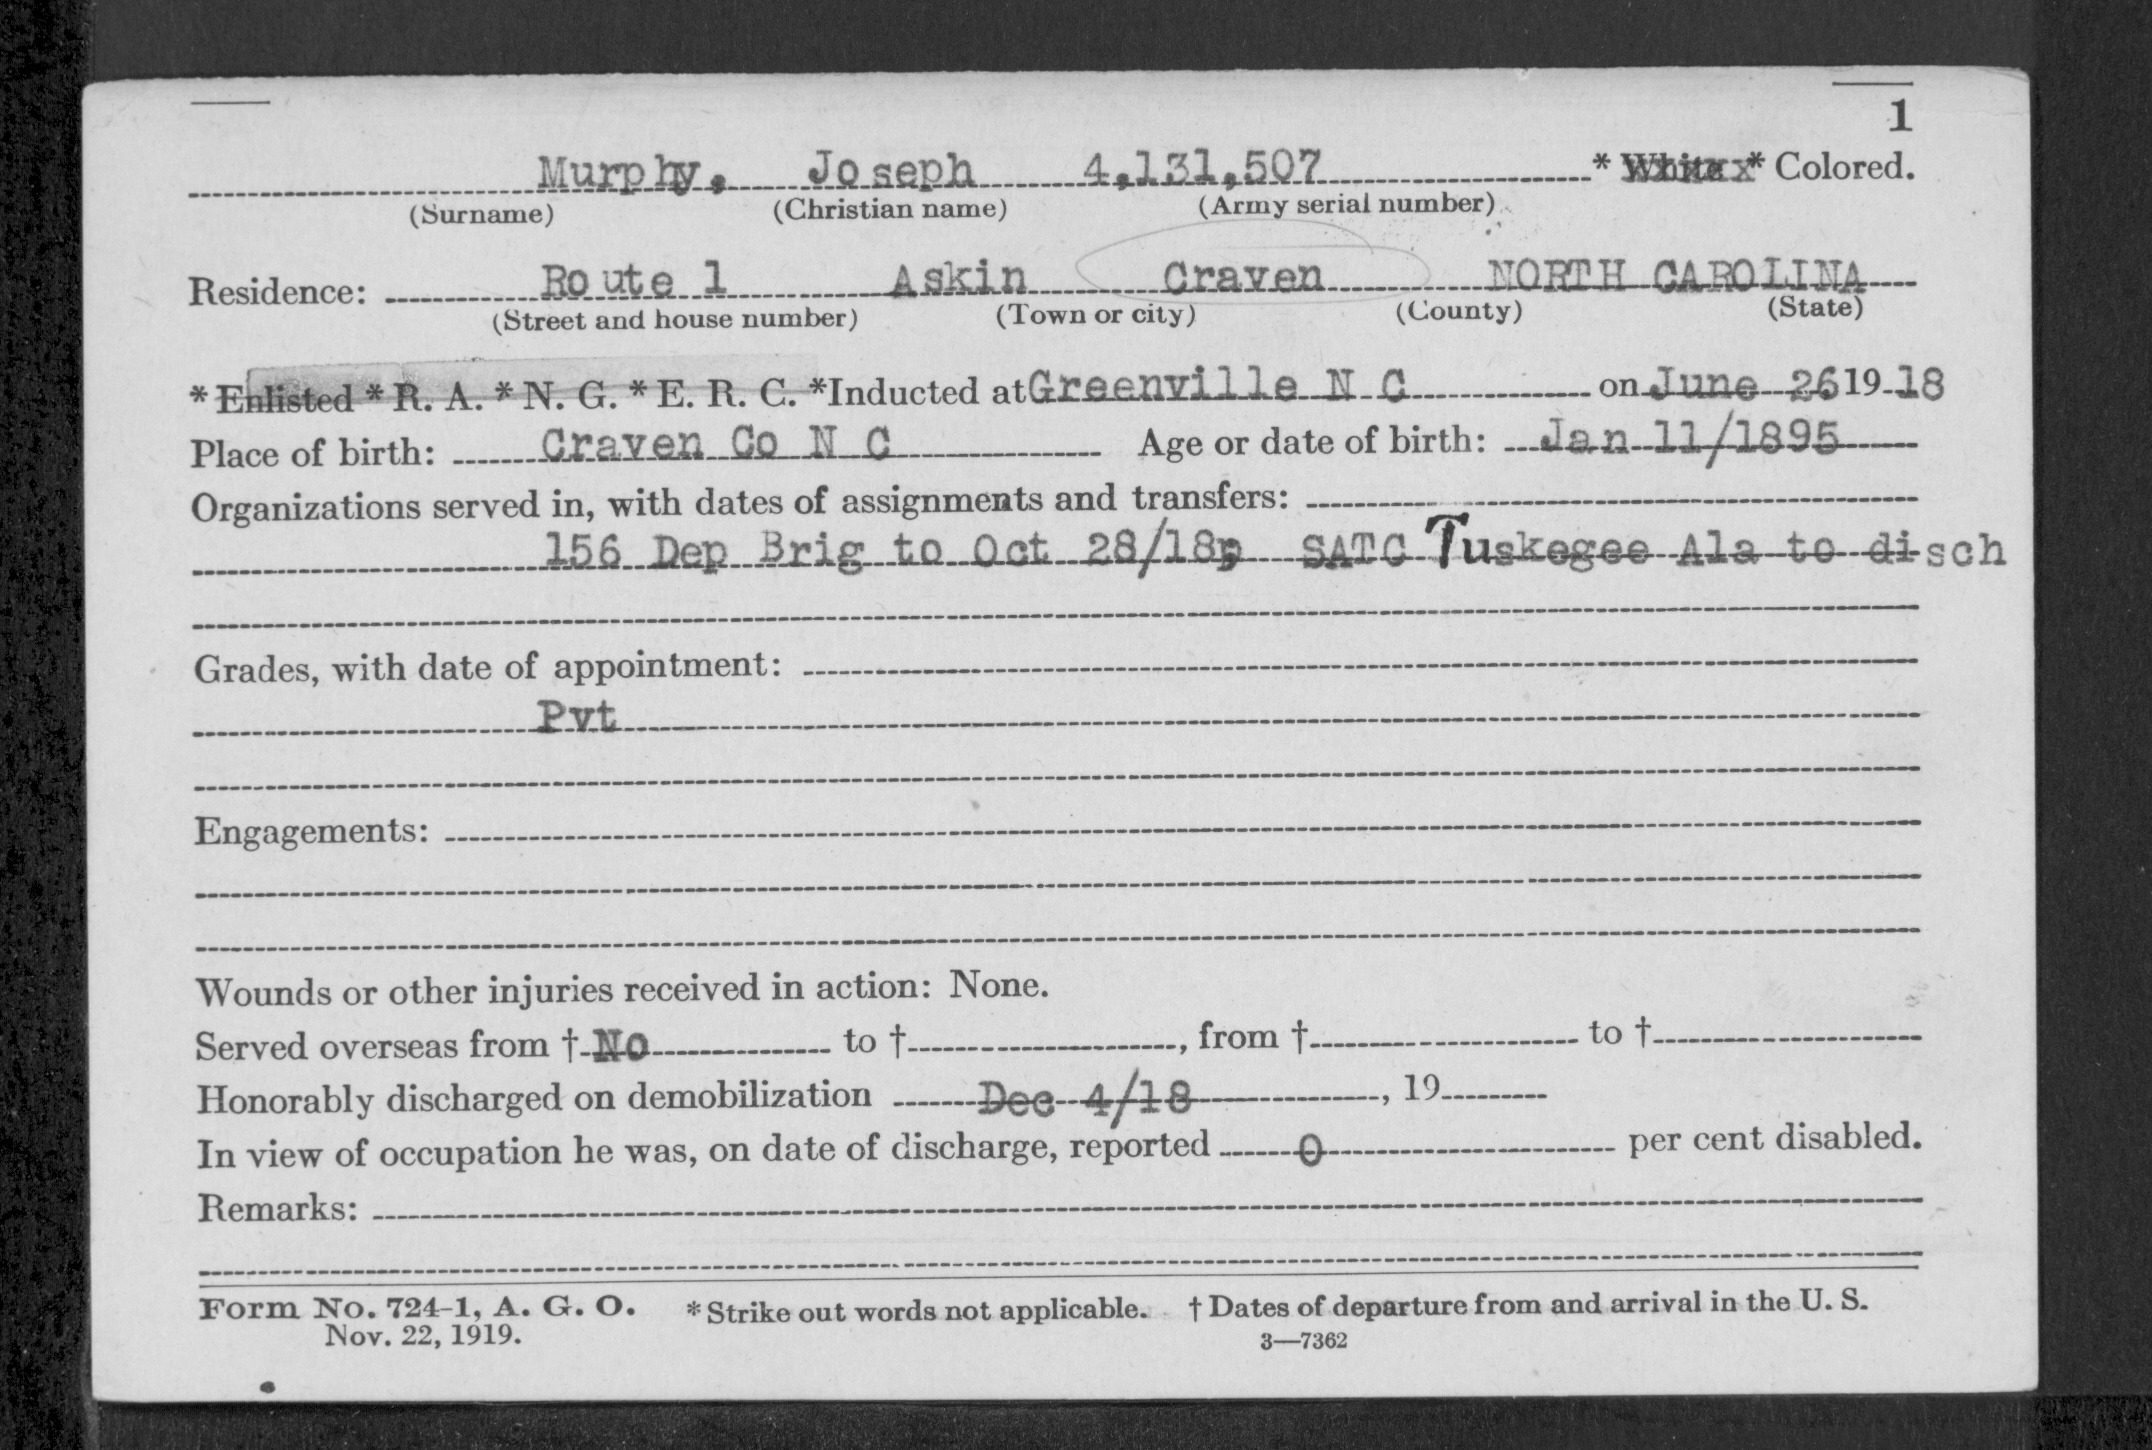 1
Murphy, Joseph 4,131,507 * White * Colored.
(Surname) (Christian name) (Army serial number)
Residence: Route 1 Askin Craven NORTH CAROLINA
(Street and house number) (Town or city) (County) (State)
* Enlisted * R. A. * N. G. * E. R. C. *Inducted at Greenville N C on June 26 19 18
Place of birth: Craven Co N C Age or date of birth: Jan 11/1895
Organizations served in, with dates of assignments and transfers:
156 Dep Brig to Oct 28/18; SATC Tuskegee Ala to disch
Grades, with date of appointment:
Pvt
Engagements:
Wounds or other injuries received in action: None.
Served overseas from † No to † , from † to †
Honorably discharged on demobilization Dec 4/18 , 19
In view of occupation he was, on date of discharge, reported 0 per cent disabled.
Remarks:
Form No. 724-1, A. G. O. * Strike out words not applicable. † Dates of departure from and arrival in the U. S.
Nov. 22, 1919. 3—7362